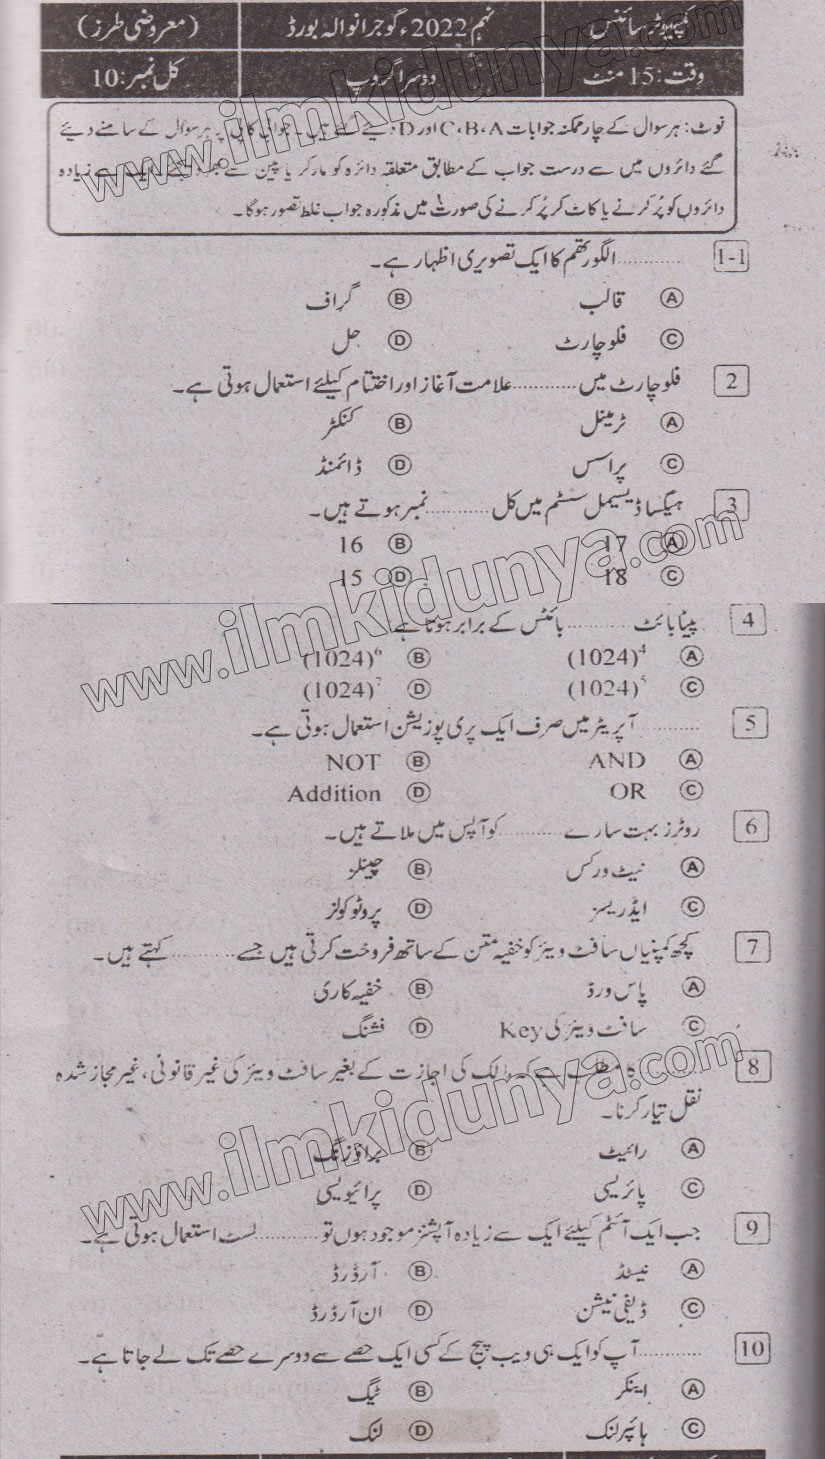 کمپیوٹر سائنس
نہم 2022ء گوجرانوالہ بورڈ
(معروضی طرز)
وقت: 15 منٹ
دوسرا گروپ
کل نمبر: 10
نوٹ: ہر سوال کے چار ممکنہ جوابات A،B،C اور D دیئے گئے ہیں۔ جوابی کاپی پر ہر سوال کے سامنے دیئے
گئے دائروں میں سے درست جواب کے مطابق متعلقہ دائرہ کو مارکر یا پین سے سے زیادہ
دائروں کو پُر کرنے یا کاٹ کر پُر کرنے کی صورت میں مذکورہ جواب غلط تصور ہوگا۔
1-1 ............الگورتھم کا ایک تصویری اظہار ہے۔
A قالب B گراف
C فلوچارٹ D حل
2 فلوچارٹ میں ............علامت آغاز اور اختتام کیلئے استعمال ہوتی ہے۔
A ٹرمینل B کنکٹر
C پراسس D ڈائمنڈ
3 ہیگسا ڈیسیمل سسٹم میں کل ............ نمبر ہوتے ہیں۔
A 17 B 16
C 18 D 15
4 پیٹا بائٹ ............ بائٹس کے برابر ہوتا ہے۔
A (1024)⁴ B (1024)⁶
C (1024)⁵ D (1024)⁷
5 ......... آپریٹر میں صرف ایک پری پوزیشن استعمال ہوتی ہے۔
A AND B NOT
C OR D Addition
6 روٹرز بہت سارے ............ کو آپس میں ملاتے ہیں۔
A نیٹ ورکس B چینلز
C ایڈریسز D پروٹوکولز
7 کچھ کمپنیاں سافٹ ویئر کو خفیہ متن کے ساتھ فروخت کرتی ہیں جسے............ کہتے ہیں۔
A پاس ورڈ B خفیہ کاری
C سافٹ ویئر کی Key D فشنگ
8 ......... کا مطلب ہے کہ مالک کی اجازت کے بغیر سافٹ ویئر کی غیر قانونی، غیر مجاز شدہ
نقل تیار کرنا۔
A رائیٹ B براؤزنگ
C پائریسی D پرائیویسی
9 جب ایک آئٹم کیلئے ایک سے زیادہ آپشنز موجود ہوں تو............ لسٹ استعمال ہوتی ہے۔
A نیسٹڈ B آرڈرڈ
C ڈیفی نیشن D ان آرڈرڈ
10 ............آپ کو ایک ہی ویب پیج کے کسی ایک حصے سے دوسرے حصے تک لے جاتا ہے۔
A اینکر B ٹیگ
C ہائپر لنک D لنک
www.ilmkidunya.com
www.ilmkidunya.com
www.ilmkidunya.com